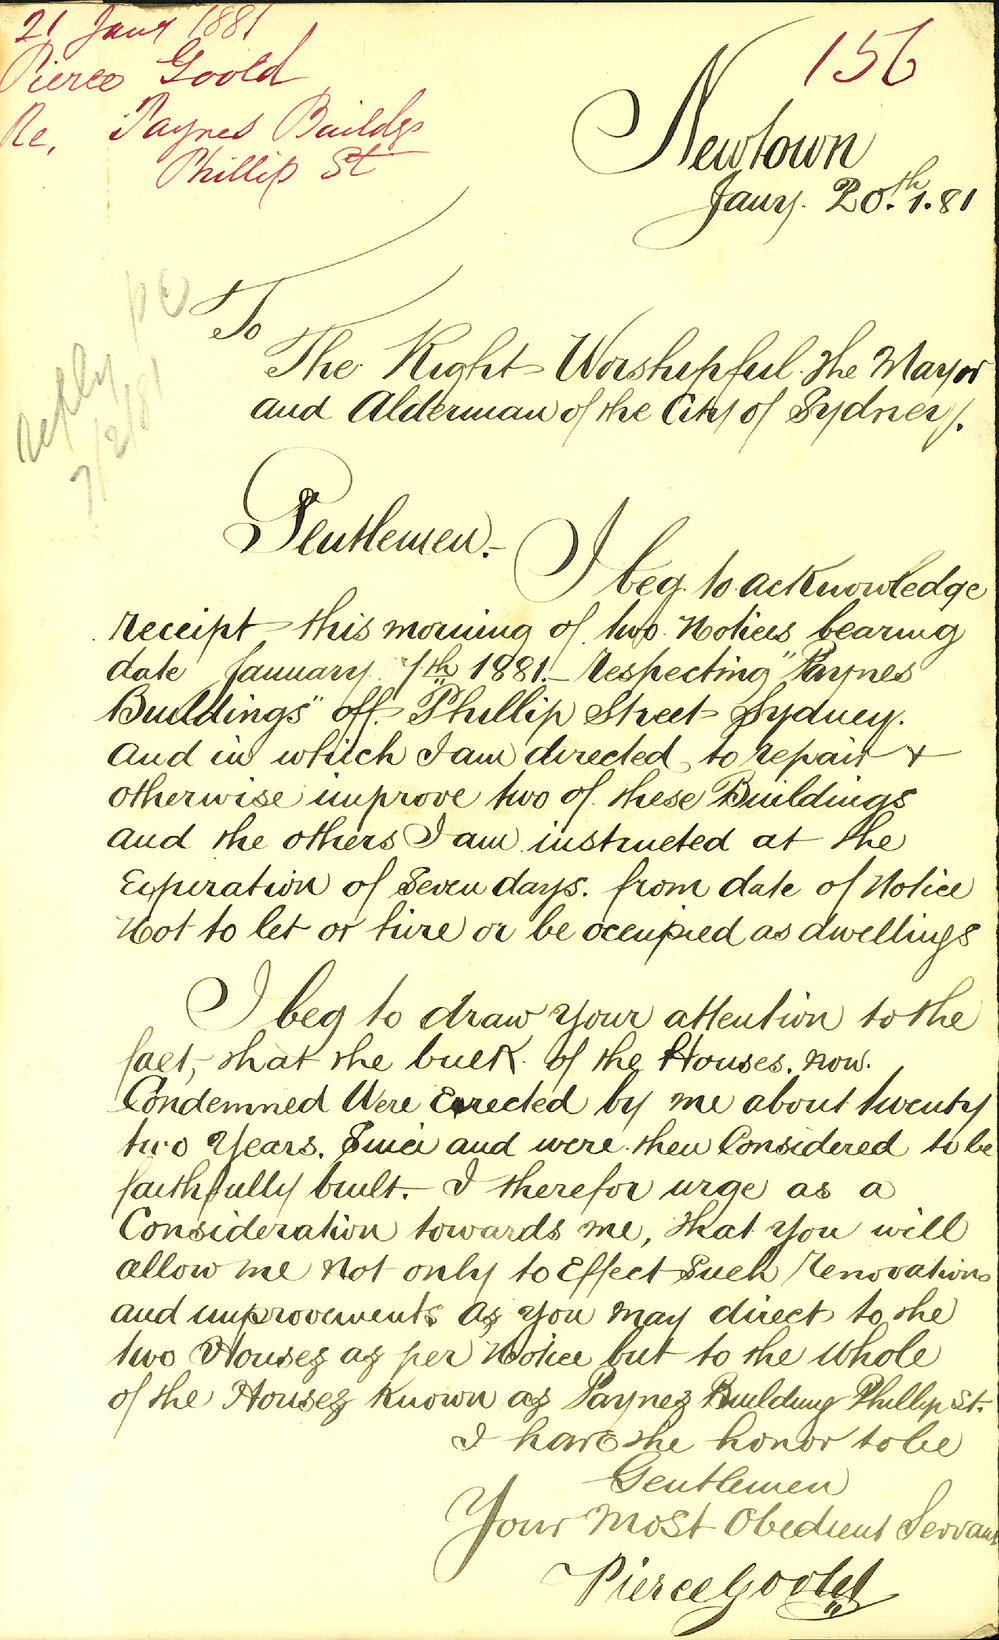 21 Jany 1881
Pierce Goold
Re, Paynes Buildgs
Phillip St
156
Newtown
Jany. 20.th 1.81
reply
7/2/81
To
The Right Worshipful the Mayor
and Alderman of the City of Sydney.
Gentlemen.-
I beg to acknowledge
receipt this morning of two Notices bearing
date January 7th 1881 - respecting "Paynes
Buildings" off Phillip Street Sydney.
And in which I am directed to repair &
otherwise improve two of these Buildings
and the others I am instructed at the
Expiration of Seven days. from date of Notice
Not to let or hire or be occupied as dwellings
I beg to draw your attention to the
fact, that the bulk of the Houses. now.
Condemned Were Erected by me about twenty
two Years. Since and were then Considered to be
faithfully built. - I therefor urge as a
Consideration towards me, that you will
allow me not only to Effect Such Renovations
and improvements as you may direct to the
two Houses as per Notice but to the Whole
of the Houses Known as Paynes Building Phillip St.
I have the honor to be
Gentlemen
Your Most Obedient Servant
Pierce Goold